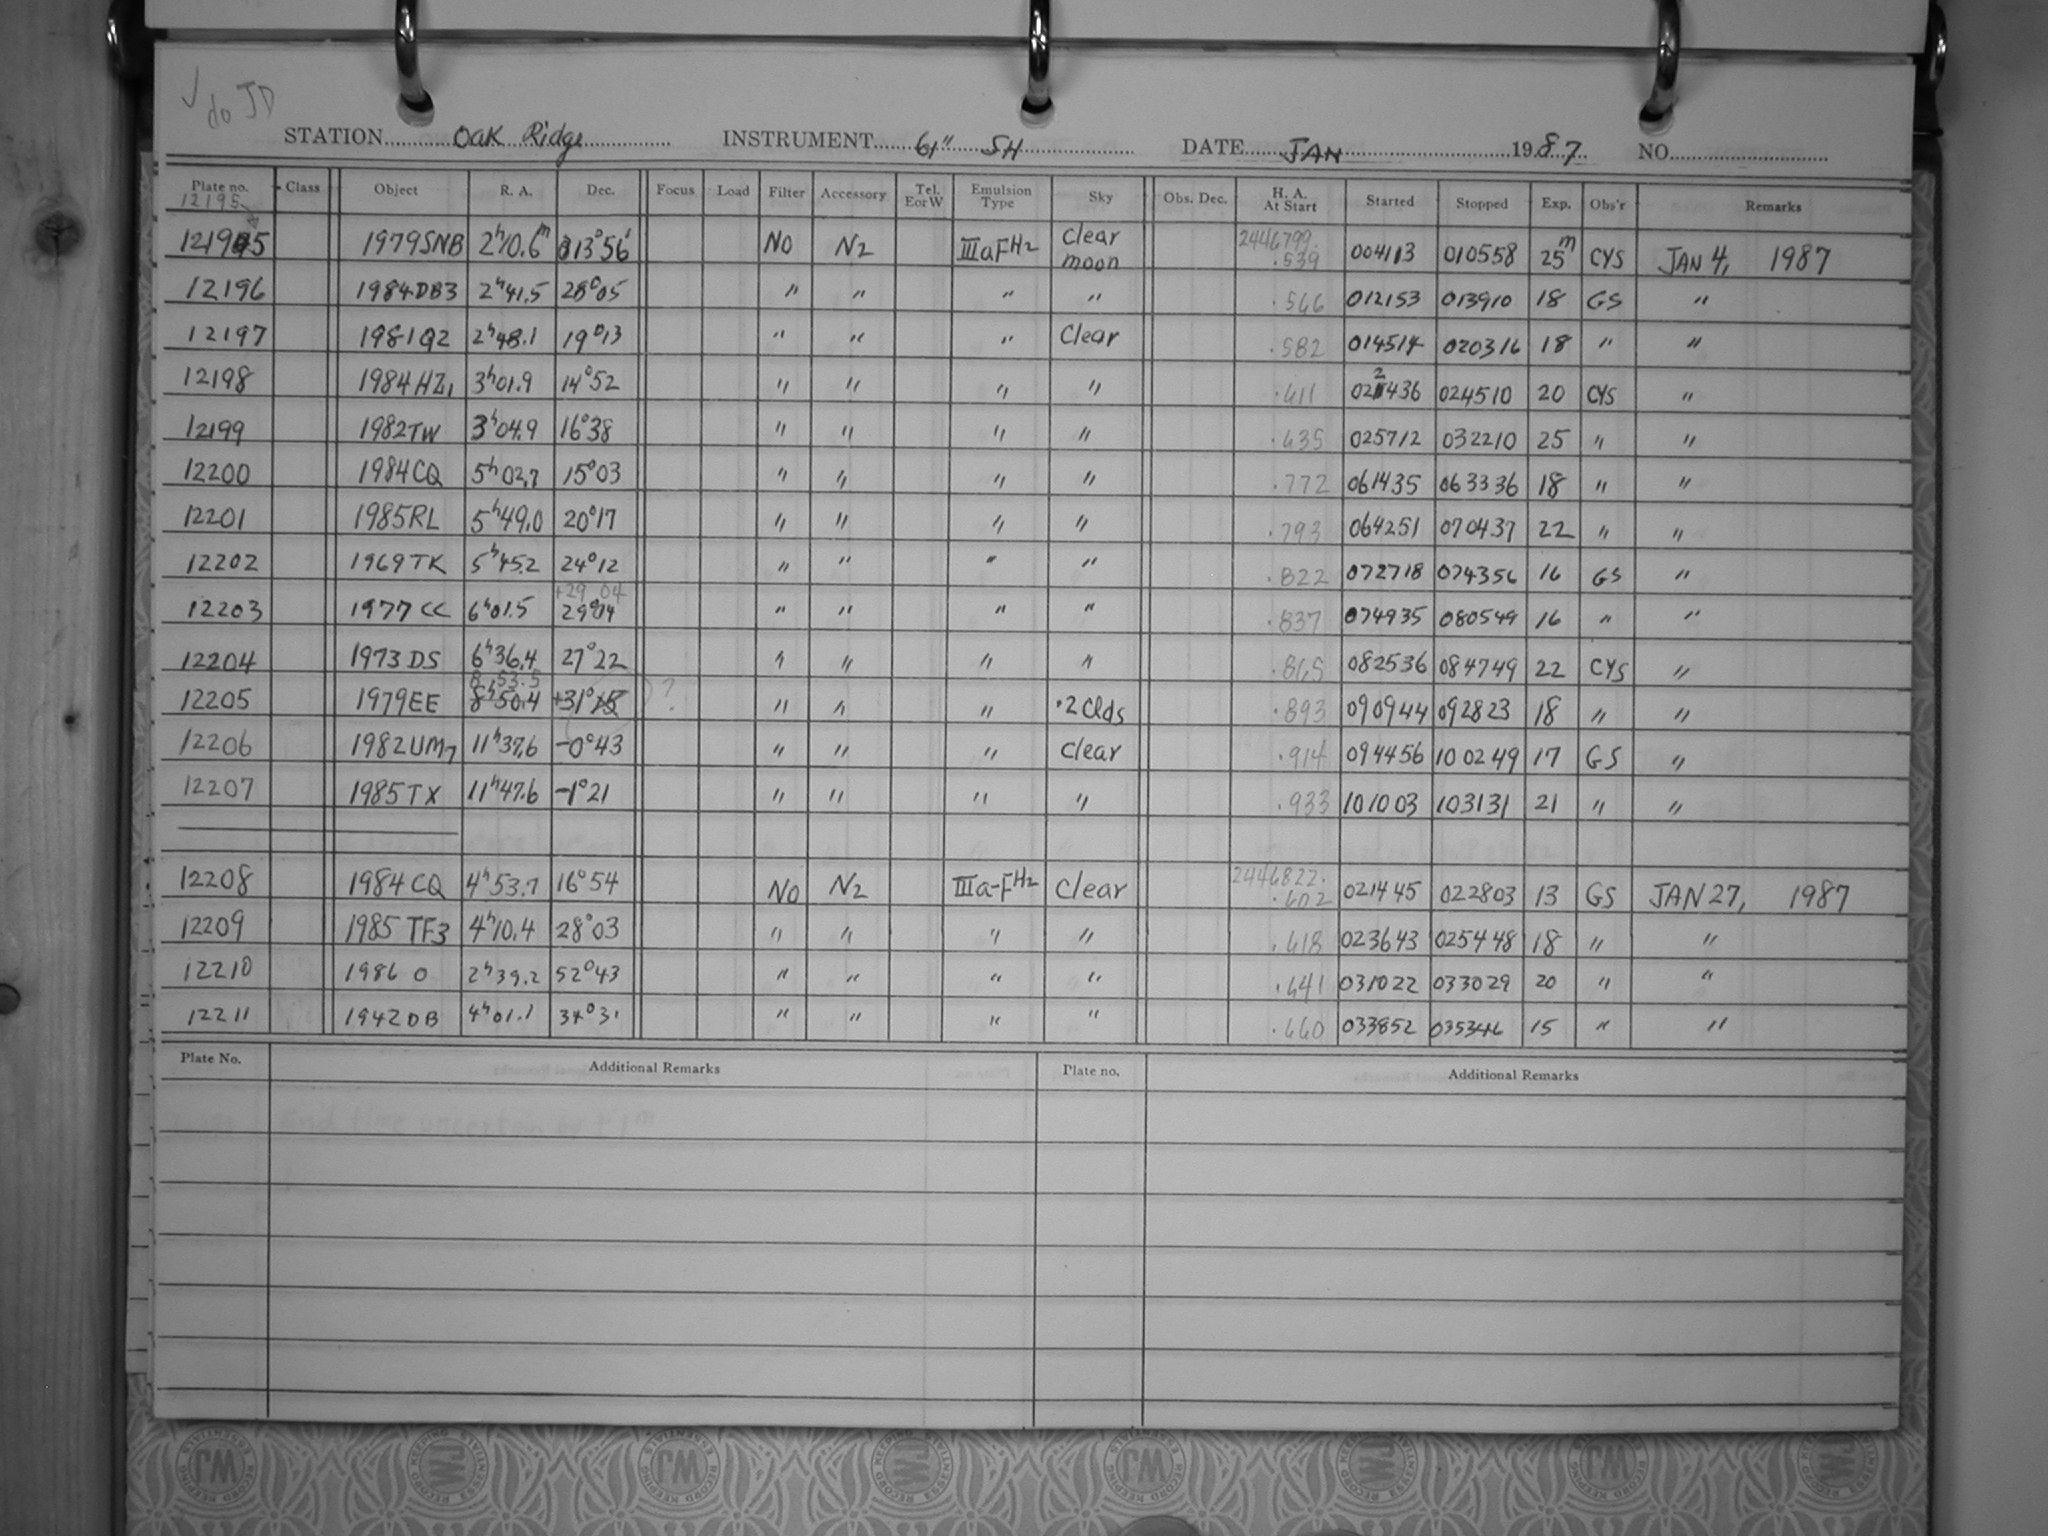 ✓ do JD
STATION Oak Ridge INSTRUMENT 61" SH DATE JAN 1987 NO.
Plate no. Class Object R. A. Dec. Focus Load Filter Accessory Tel. E or W Emulsion Type Sky Obs. Dec. H. A. At Start Started Stopped Exp. Obs'r Remarks
12195
12195 1979SNB 2h10.6m 13°56' NO N2 IIIaF H2 clear moon 2446799. .539 004113 010558 25m CYS JAN 4, 1987
12196 1984DB3 2h41.5 28°05 " " " " .566 012153 013910 18 GS "
12197 1981QZ 2h48.1 19°13 " " " Clear .582 014514 020316 18 " "
12198 1984HZ1 3h01.9 14°52 " " " " .611 022436 024510 20 CYS "
12199 1982TW 3h04.9 16°38 " " " " .635 025712 032210 25 " "
12200 1984CQ 5h02.7 15°03 " " " " .772 061435 063336 18 " "
12201 1985RL 5h49.0 20°17 " " " " .793 064251 070437 22 " "
12202 1969TK 5h45.2 24°12 " " " " .822 072718 074356 16 GS "
+29 04
12203 1977CC 6h01.5 29°14 " " " " .837 074935 080549 16 " "
12204 1973DS 6h36.4 27°22 " " " " .865 082536 084749 22 CYS "
8 53.5
12205 1979EE 8h50.4 +31°15 ? " " " .2 Clds .893 090944 092823 18 " "
12206 1982UM7 11h37.6 -0°43 " " " clear .914 094456 100249 17 GS "
12207 1985TX 11h47.6 -1°21 " " " " .933 101003 103131 21 " "
12208 1984CQ 4h53.7 16°54 NO N2 IIIa-F H2 Clear 2446822. .602 021445 022803 13 GS JAN 27, 1987
12209 1985 TF3 4h10.4 28°03 " " " " .618 023643 025448 18 " "
12210 1986 O 2h39.2 52°43 " " " " .641 031022 033029 20 " "
12211 1942DB 4h01.1 34°31 " " " " .660 033852 035346 15 " "
Plate No. Additional Remarks Plate no. Additional Remarks